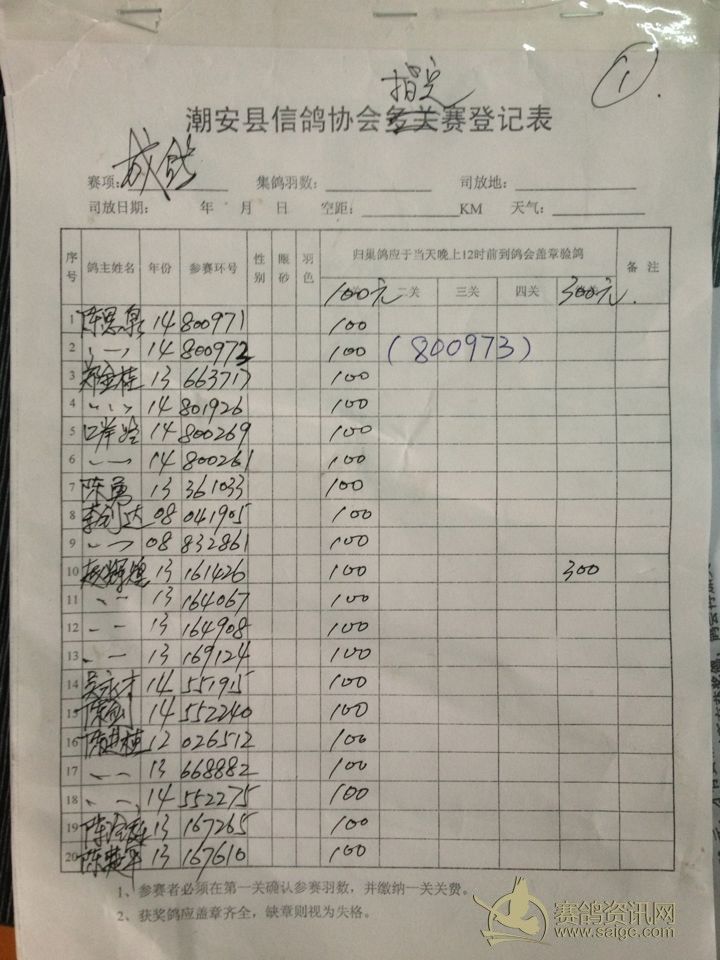 指定
①
潮安县信鸽协会多关赛登记表
赛项: 成鸽 集鸽羽数: 司放地:
司放日期: 年 月 日 空距: KM 天气:
序号 鸽主姓名 年份 参赛环号 性别 眼砂 羽色 归巢鸽应于当天晚上12时前到鸽会盖章验鸽 备 注
100元 二关 三关 四关 300元
1 陈思泉 14 800971 100
2 〃 14 800973 100 (800973)
3 郑金桂 13 663717 100
4 〃 14 801926 100
5 14 800269 100
6 〃 14 800261 100
7 陈勇 13 361033 100
8 李剑达 08 041905 100
9 〃 08 832861 100
10 13 161426 100 300
11 〃 13 164067 100
12 〃 13 164908 100
13 〃 13 169124 100
14 吴永才 14 551915 100
15 陈剑 14 552240 100
16 12 026512 100
17 〃 13 668882 100
18 〃 14 552275 100
19 13 167265 100
20 13 167610 100
1、参赛者必须在第一关确认参赛羽数，并缴纳一关关费。
2、获奖鸽应盖章齐全，缺章则视为失格。
赛鸽资讯网
www.saige.com